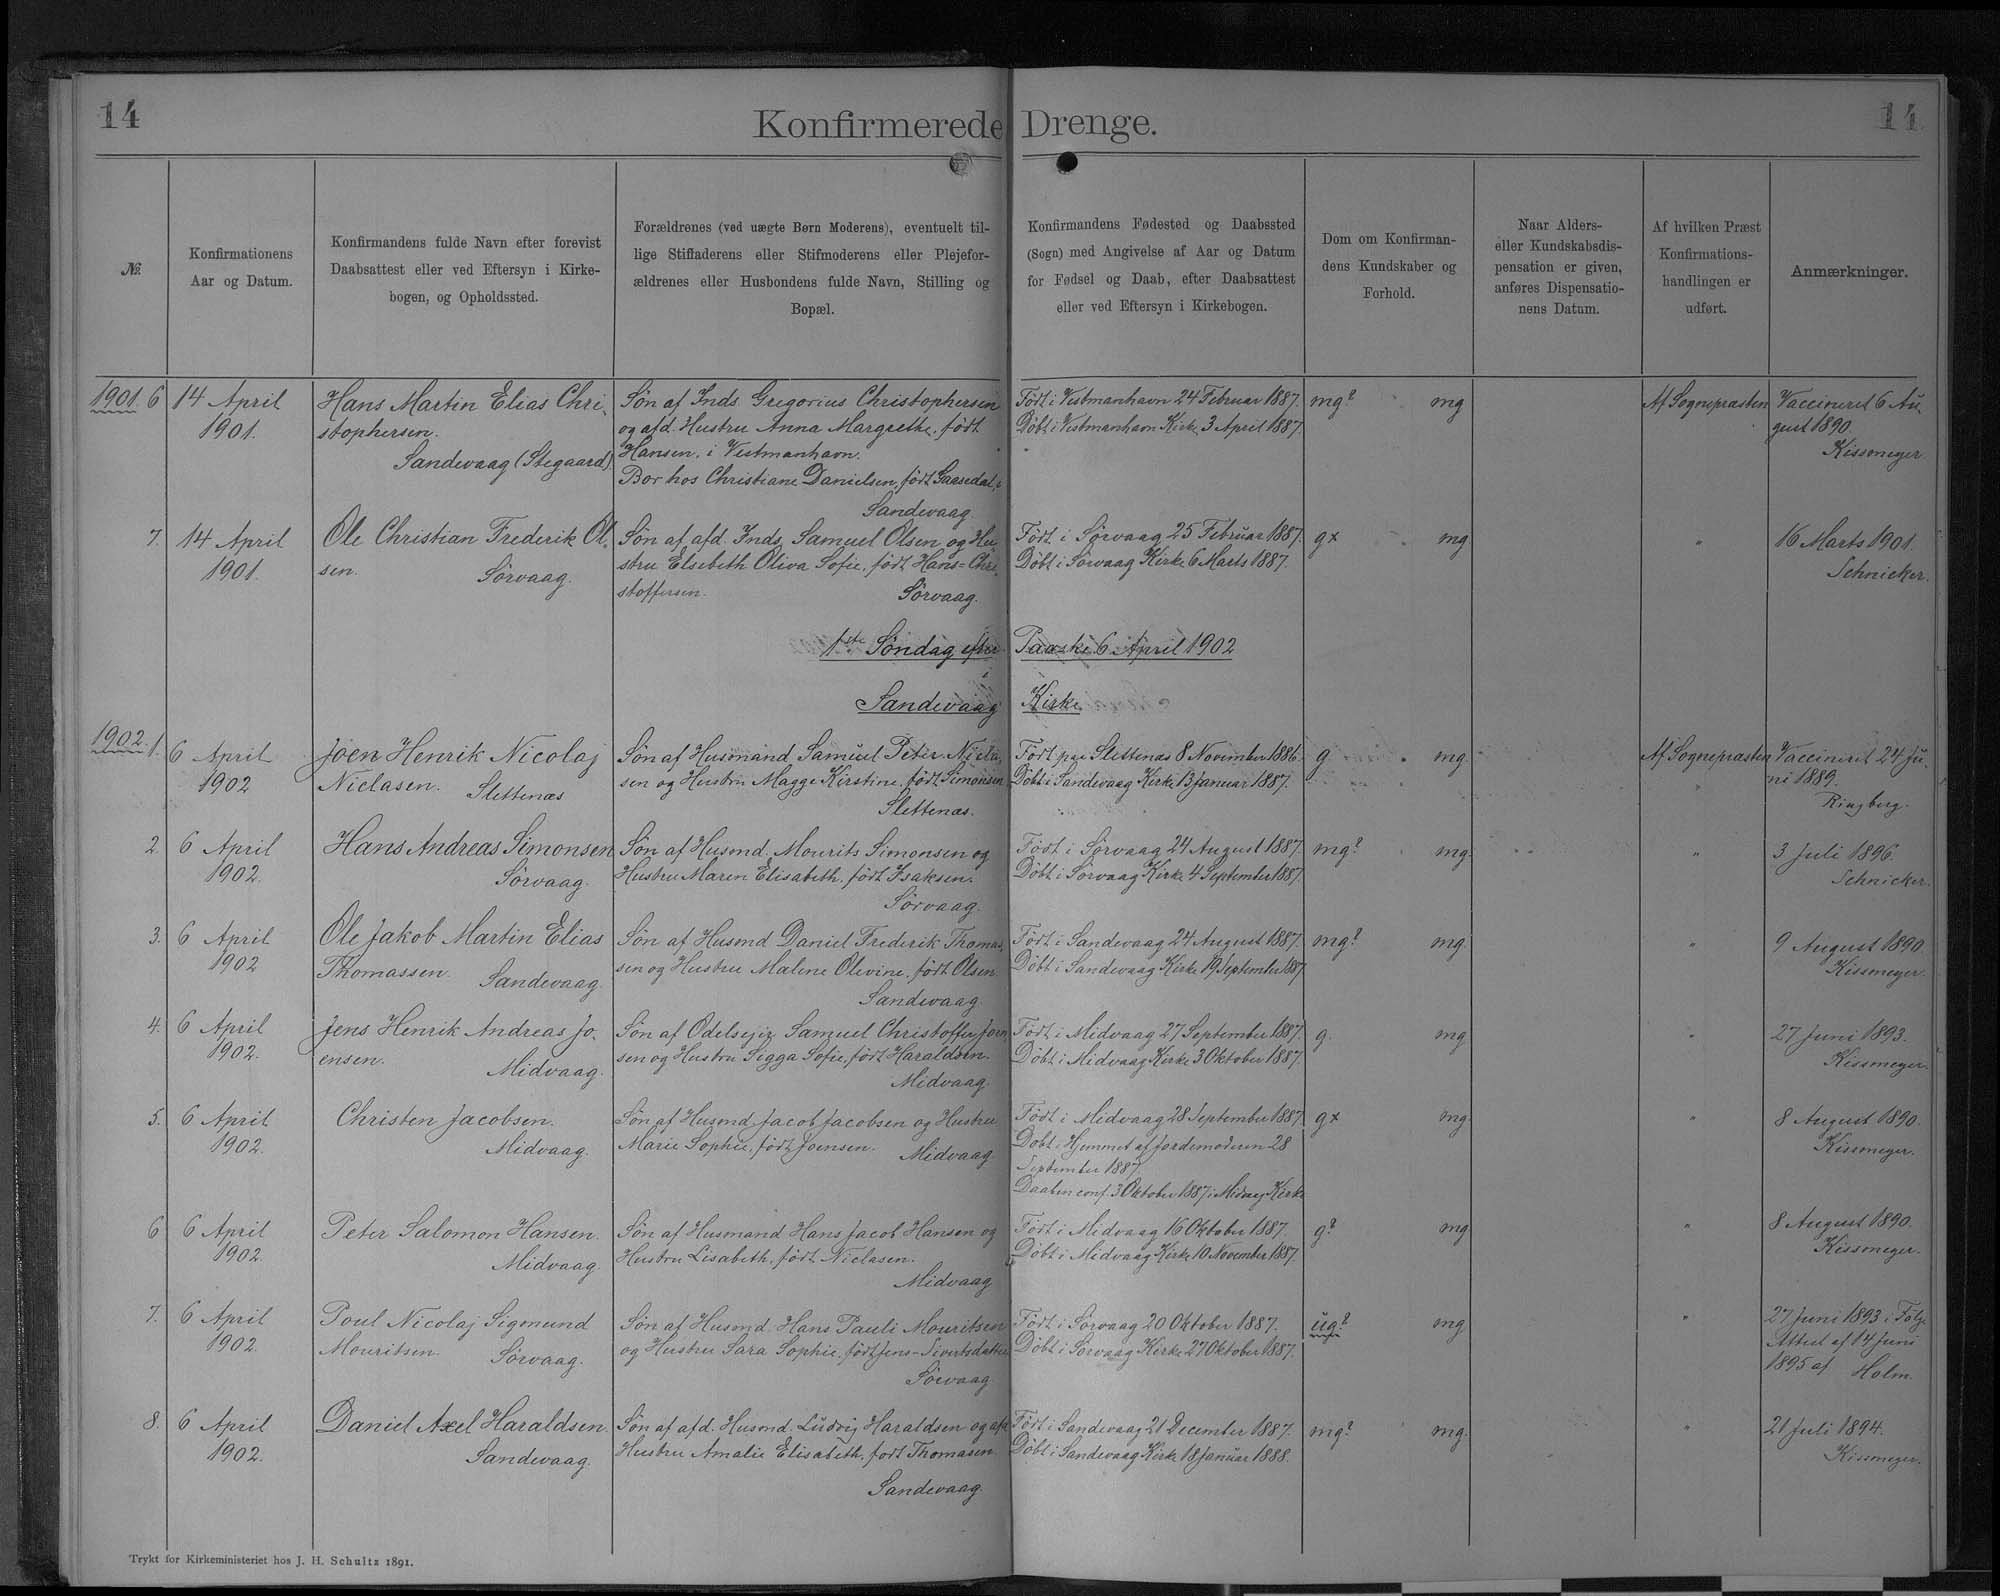 14
Konfirmerede Drenge.
14
№.
Konfirmationens
Aar og Datum.
Konfirmandens fulde Navn efter forevist
Daabsattest eller ved Eftersyn i Kirke-
bogen, og Opholdssted.
Forældrenes (ved uægte Børn Moderens), eventuelt til-
lige Stiffaderens eller Stifmoderens eller Plejefor-
ældrenes eller Husbondens fulde Navn, Stilling og
Bopæl.
Konfirmandens Fødested og Daabssted
(Sogn) med Angivelse af Aar og Datum
for Fødsel og Daab, efter Daabsattest
eller ved Eftersyn i Kirkebogen.
Dom om Konfirman-
dens Kundskaber og
Forhold.
Naar Alders-
eller Kundskabsdis-
pensation er given,
anføres Dispensatio-
nens Datum.
Af hvilken Præst
Konfirmations-
handlingen er
udført.
Anmærkninger.
1901. 6
14 April
1901.
Hans Martin Elias Chri-
stophersen.
Sandevaag (Stegaard)
Søn af Inds. Gregorius Christophersen
og afd. Hustru Anna Margrethe, født
Hansen, i Vestmanhavn.
Bor hos Christiane Danielsen, født Gaasedal,
Sandevaag.
Født i Vestmanhavn 24 Februar 1887.
Döbt i Vestmanhavn Kirke 3 April 1887.
mg? mg
Af Sognepræsten
Vaccineret 6 Au-
gust 1890.
Kissmeyer.
7.
14 April
1901.
Ole Christian Frederik Ol-
sen.
Sörvaag.
Søn af afd. Inds. Samuel Olsen og Hu-
stru Elsebeth Oliva Sofie, født Hans=Chri-
stoffersen.
Sörvaag.
Født i Sörvaag 25 Februar 1887.
Döbt i Sörvaag Kirke 6 Marts 1887.
gx mg
"
16 Marts 1901.
Schnicker.
1ste Söndag efter Paaske 6 April 1902
i
Sandevaag Kirke
1902. 1.
6 April
1902
Joen Henrik Nicolaj
Niclasen.
Slettenæs
Søn af Husmand Samuel Peter Nicla-
sen og Hustru Magge Kirstine, født Simonsen
Slettenæs.
Født paa Slettenæs 8 November 1886.
Döbt i Sandevaag Kirke 13 Januar 1887.
g mg
Af Sognepræsten
Vaccineret 24 Ju-
ni 1889.
Ringberg.
2.
6 April
1902.
Hans Andreas Simonsen
Sörvaag.
Søn af Husmd. Mourits Simonsen og
Hustru Maren Elisabeth, født Isaksen.
Sörvaag.
Født i Sörvaag 24 August 1887.
Döbt i Sörvaag Kirke 4 September 1887.
mg? mg.
"
3 Juli 1896.
Schnicker.
3.
6 April
1902
Ole Jakob Martin Elias
Thomassen.
Sandevaag.
Søn af Husmd Daniel Frederik Thomas-
sen og Hustru Malene Olevine, født Olsen
Sandevaag.
Født i Sandevaag 24 August 1887.
Döbt i Sandevaag Kirke 19 September 1887
mg? mg.
"
9 August 1890.
Kissmeyer.
4.
6 April
1902.
Jens Henrik Andreas Jo-
ensen.
Midvaag.
Søn af Odelsejer Samuel Christoffer Joen-
sen og Hustru Sigga Sofie, født Haraldsen.
Midvaag.
Født i Midvaag 27 September 1887.
Döbt i Midvaag Kirke 3 Oktober 1887.
g. mg
"
27 Juni 1893.
Kissmeyer.
5.
6 April
1902.
Christen Jacobsen.
Midvaag.
Søn af Husmd Jacob Jacobsen og Hustru
Marie Sophie, født Joensen.
Midvaag
Født i Midvaag 28 September 1887
Döbt i Hjemmet af Jordemoderen 28
September 1887.
Daaben conf. 3 Oktober 1887 i Midvaag Kirke
gx mg
"
8 August 1890.
Kissmeyer.
6
6 April
1902.
Peter Salomon Hansen.
Midvaag
Søn af Husmand Hans Jacob Hansen og
Hustru Lisabeth, født Niclasen.
Midvaag
Født i Midvaag 16 Oktober 1887.
Döbt i Midvaag Kirke 10 November 1887.
g? mg
"
8 August 1890.
Kissmeyer.
7.
6 April
1902.
Poul Nicolaj Sigmund
Mouritsen.
Sörvaag.
Søn af Husmd. Hans Pauli Mouritsen
og Hustru Sara Sophie, født Jens-Sivertsdatter
Sörvaag
Født i Sörvaag 20 Oktober 1887.
Döbt i Sörvaag Kirke 27 Oktober 1887.
ug? mg
"
27 Juni 1893 i Følge
Attest af 14 Juni
1895 af Holm.
8.
6 April
1902.
Daniel Axel Haraldsen.
Sandevaag.
Søn af afd. Husmd. Ludvig Haraldsen og afd
Hustru Amalie Elisabeth, født Thomasen
Sandevaag.
Født i Sandevaag 21 December 1887.
Döbt i Sandevaag Kirke 18 Januar 1888.
mg? mg.
"
21 Juli 1894.
Kissmeyer.
Trykt for Kirkeministeriet hos J. H. Schultz 1891.